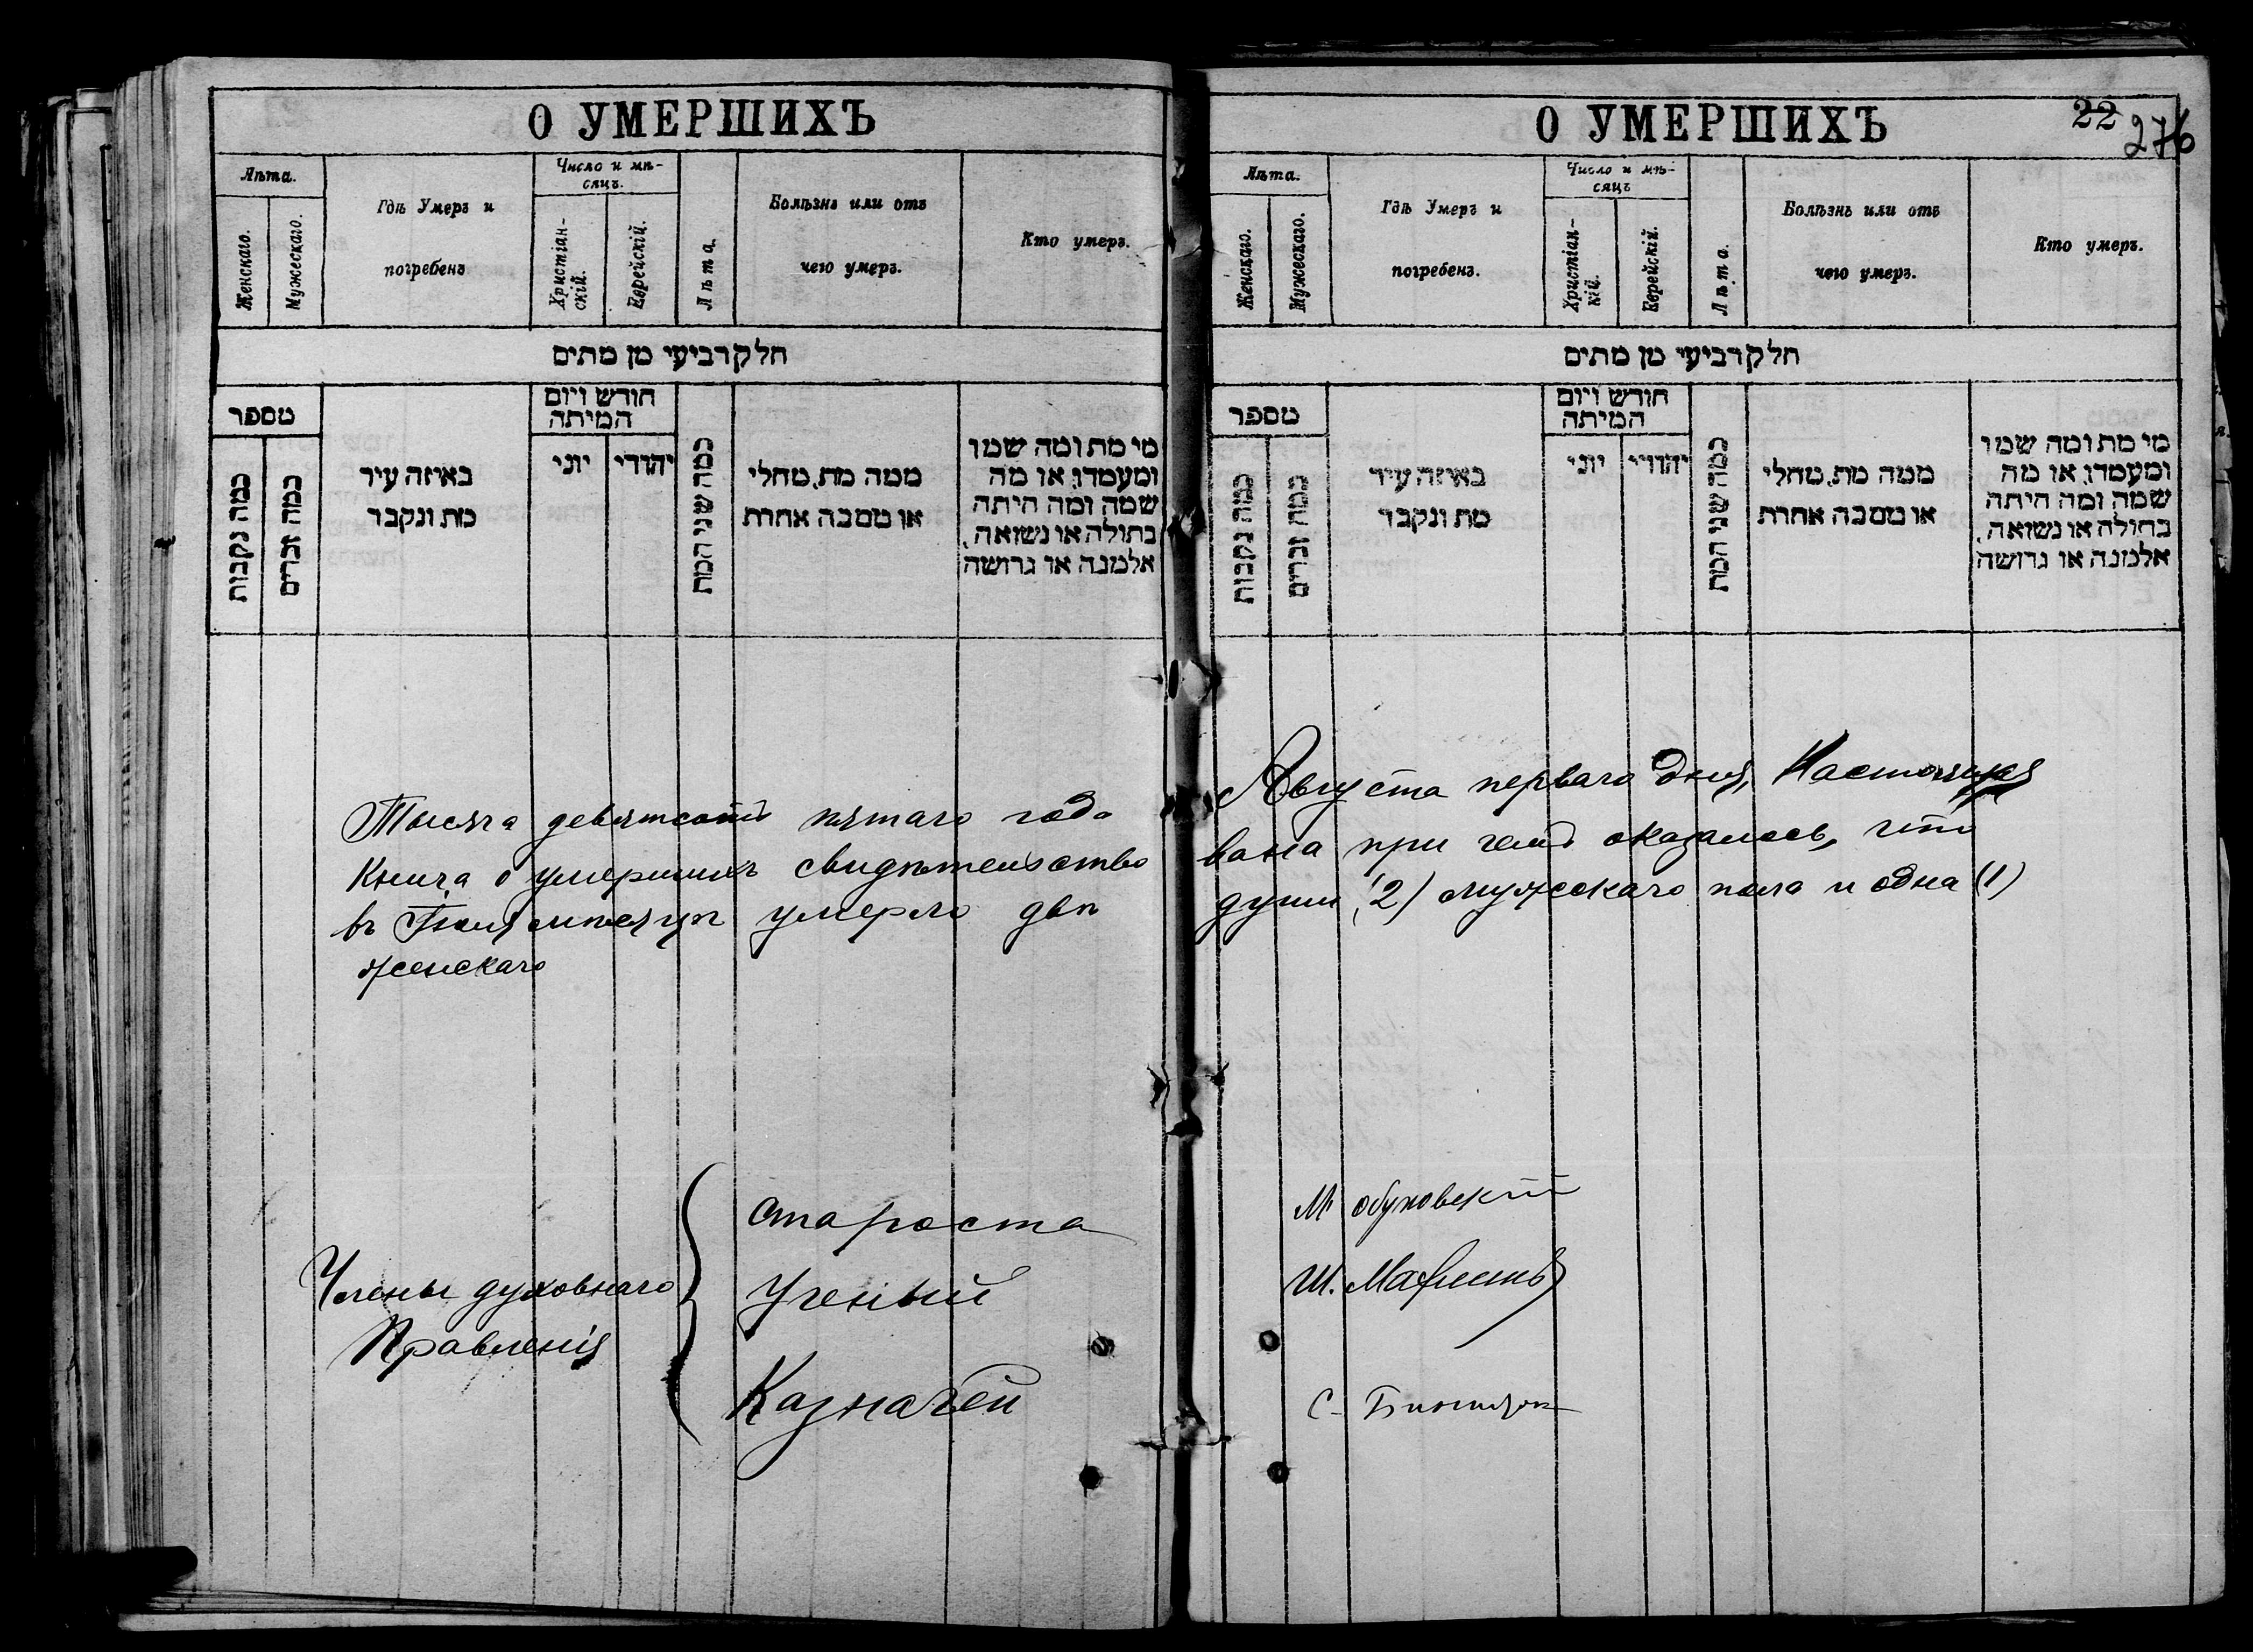 О УМЕРШИХЪ
Лѣта.
Женскаго.
Мужескаго.
Гдѣ Умеръ и
погребенъ
Число и мѣ-
сяцъ.
Христіан-
скій.
Еврейскій.
Лѣта.
Болѣзнь или отъ
чего умеръ.
Кто умеръ.
חלק רביעי מן מתים
מספר
כמה נקבות
כמה זכרים
באיזה עיר
מת ונקבר
חודש ויום
המיתה
יוני
יהודי
כמה שני המת
ממה מת, מחלי
או מסבה אחרת
מי מת ומה שמו
ומעמדו, או מה
שמה ומה היתה
בתולה או נשואה,
אלמנה או גרושה
Тысяча девятсотъ пятаго года
Книга о умершихъ свидѣтельство
въ Іюлѣ мѣсяцѣ умерло двѣ
женскаго
Члены духовнаго
Правленія
Староста
Ученый
Казначей
О УМЕРШИХЪ
22
276
Лѣта.
Женскаго.
Мужескаго.
Гдѣ Умеръ и
погребенъ.
Число и мѣ-
сяцъ
Христіан-
кій.
Еврейскій.
Лѣта.
Болѣзнь или отъ
чего умеръ.
Кто умеръ.
חלק רביעי מן מתים
מספר
כמה נקבות
כמה זכרים
באיזה עיר
מת ונקבר
חודש ויום
המיתה
יוני
יהודי
כמה שני המת
ממה מת, מחלי
או מסבה אחרת
מי מת ומה שמו
ומעמדו, או מה
שמה ומה היתה
בתולה או נשואה,
אלמנה או גרושה
Августа перваго дня, Настоящая
вана при чемъ оказалось, что
души (2) мужскаго пола и одна (1)
М Обуховскій
Ш.
С.